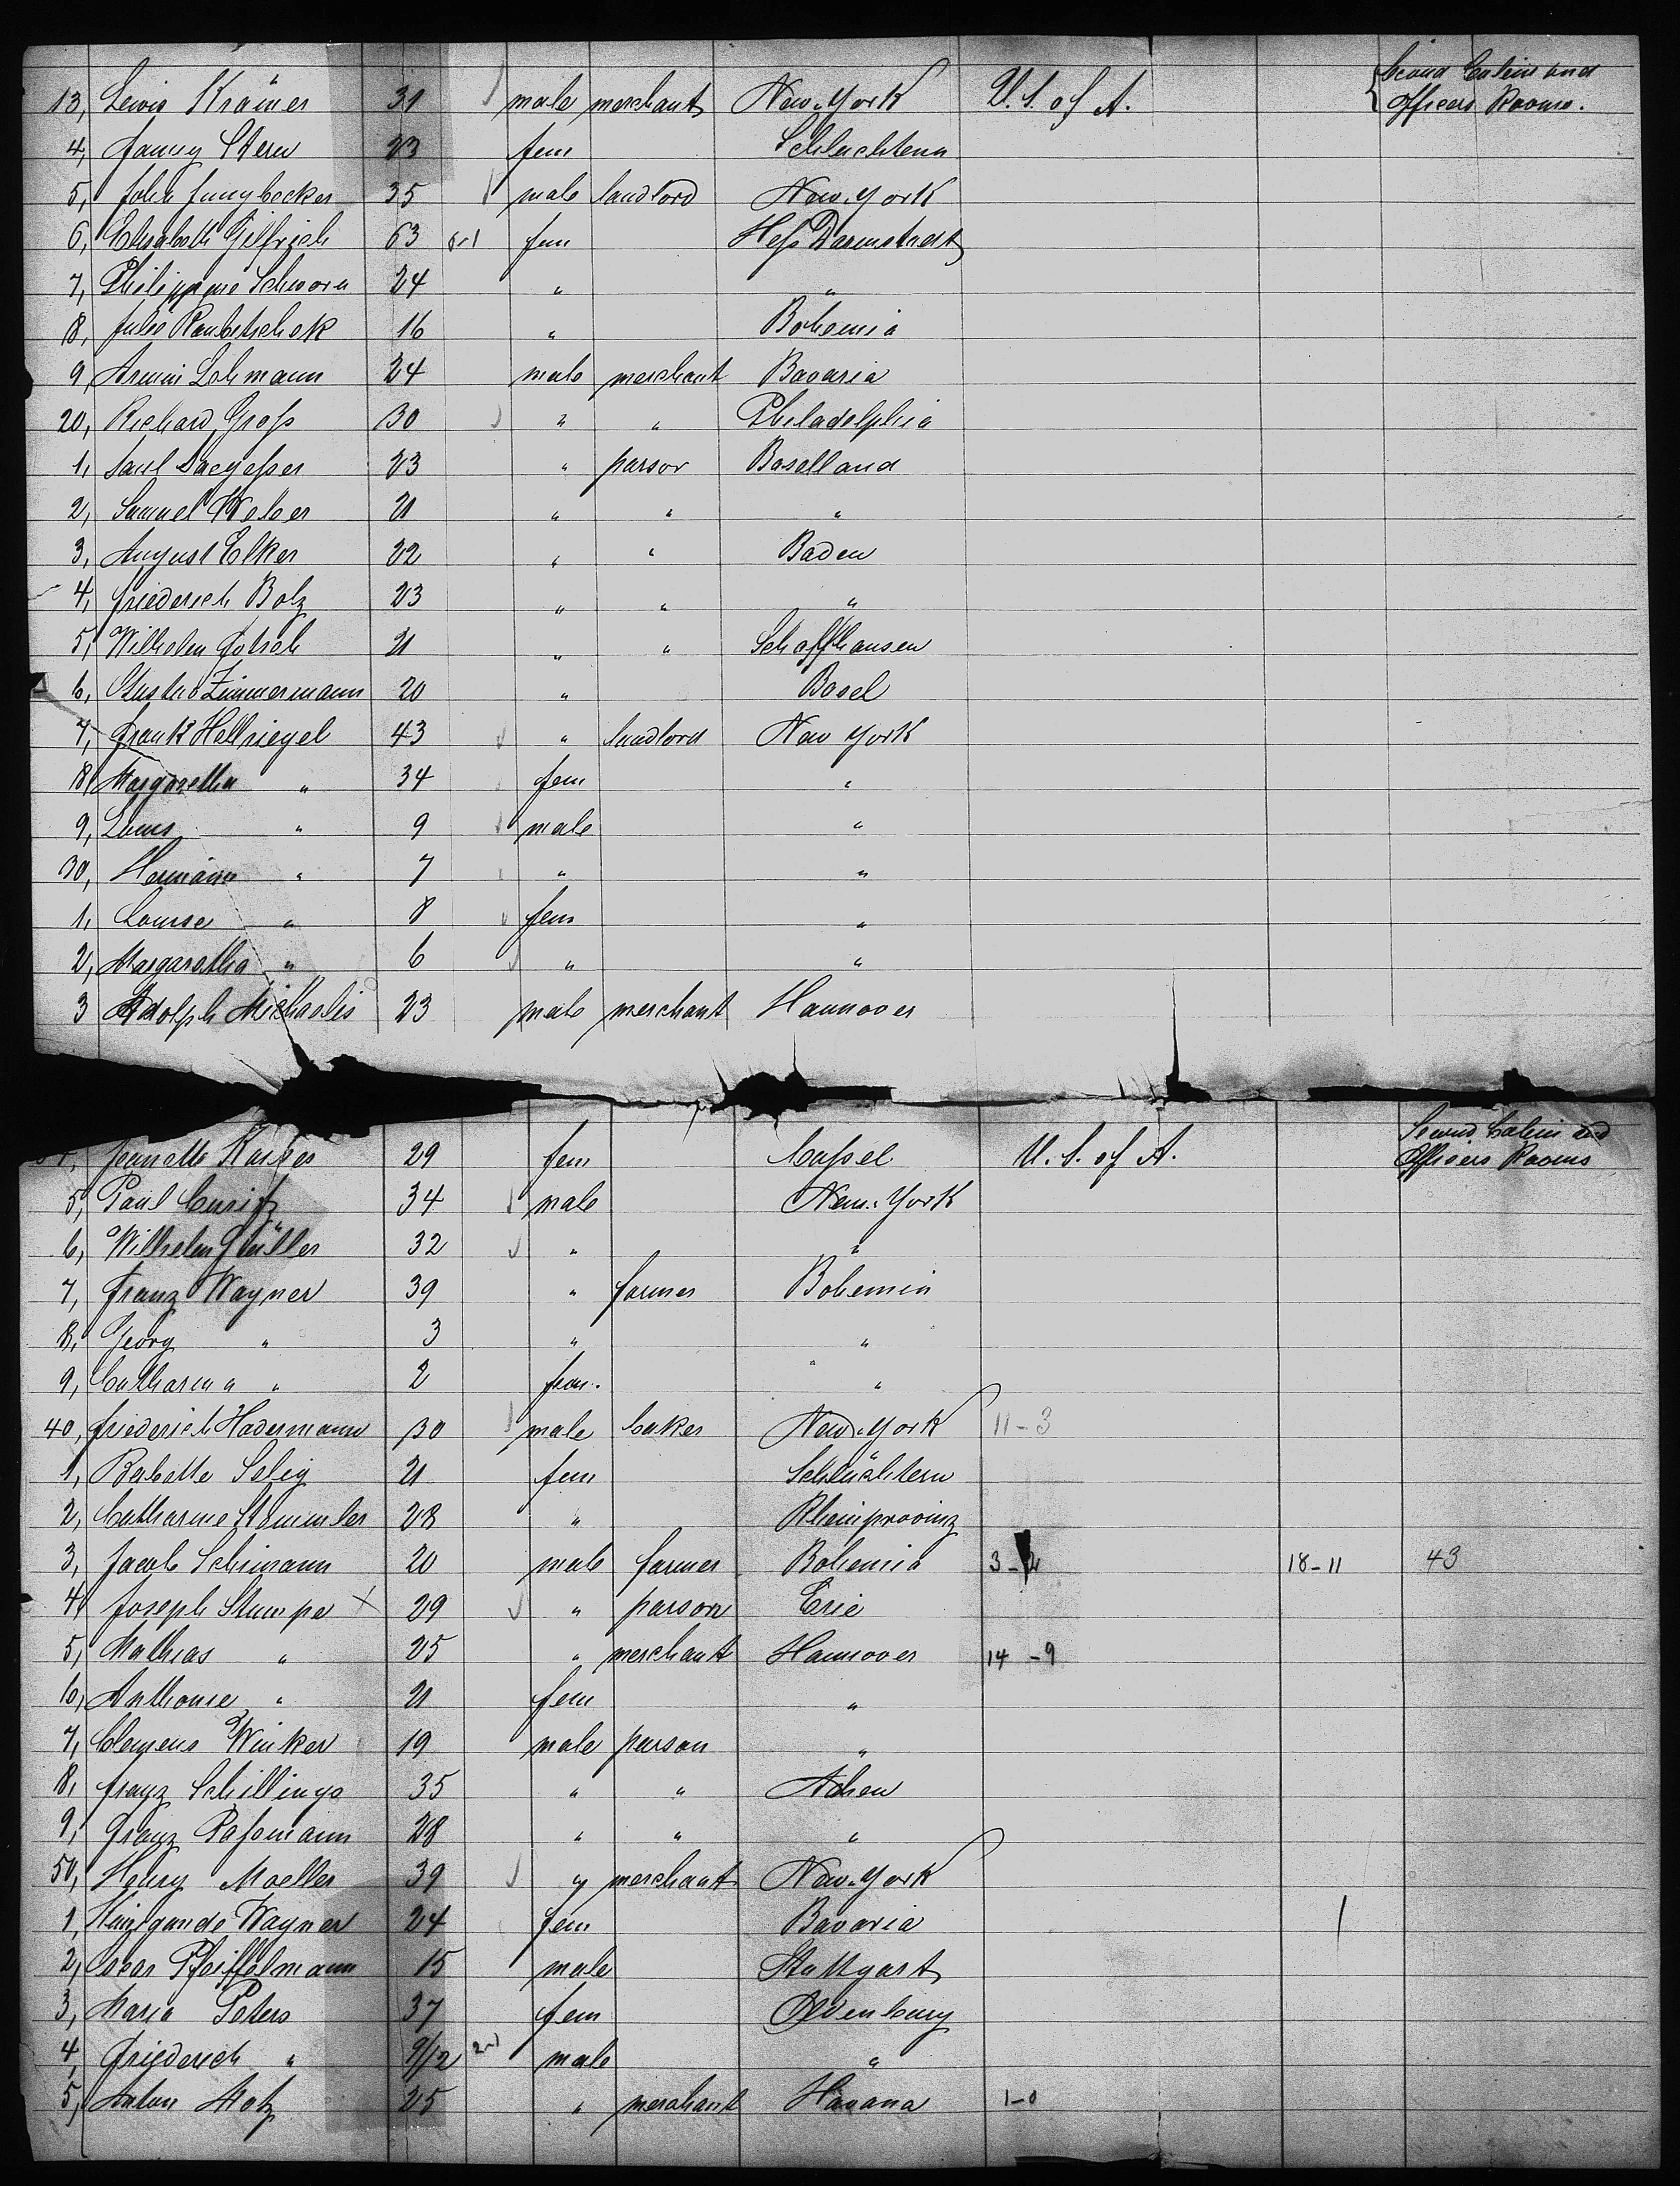 13, Lewis Krämer 31 male merchant New-York U. S. of A. Second Cabin and
Officers Rooms.
4, Fanny Stern 23 fem Schluchtern
5, John Jungbecker 35 male landlord New-York
6, Elisabeth Gilfrich 63 fem Heſs Darmstadt
7, Philippine Schworn 24 " "
8, Julie 16 " Bohemia
9, Armin Lehmann 24 male merchant Bavaria
20, Richard Groſs 30 " " Philadelphia
1, Paul 23 " parsor Baselland
2, Samuel Weber 21 " " "
3, August Elker 22 " " Baden
4, Friederich Bolz 23 " " "
5, Wilhelm Gotsch 21 " " Schaffhausen
6, Gustav Zimmermann 20 " Basel
7, Frank Hellriegel 43 " landlord New York
8, Margaretha " 34 fem "
9, Louis " 9 male "
30, Hermann " 7 " "
1, Louise " 8 fem "
2, Margaretha " 6 " "
3 Adolph Michaelis 23 male merchant Hannover
Jeanette 29 fem Caſsel U. S. of A. Second Cabin and
Officers Rooms
5, Paul 34 male New-York
6, Wilhelm Müller 32 " "
7, Franz Wagner 39 " farmer Bohemia
8, Georg " 3 " "
9, Catharina " 2 fem. "
40, Friederich Hadermann 30 male baker New-York 11-3
1, Babette Selig 21 fem Schlüchtern
2, Catharine Stemmler 28 " Rheinprovinz
3, Jacob Schimann 20 male farmer Bohemia 3- 18-11 43
4, Joseph Stumpe X 29 " parson Erie
5, Mathias " 25 " merchant Hannover 14 -9
6, Anthonie " 21 fem "
7, Clemens Winker 19 male parson "
8, Franz Schillings 35 " " Achen
9, Franz Paſsmann 28 " " "
50, Henry Moeller 39 " merchant New-York
1, Kunigunde Wagner 24 fem Bavaria
2, Oscar Pfeiffelmann 15 male Stuttgart
3, Maria Peters 37 fem Oldenburg
4, Friederich " 9/12 male "
5, Anton Motz 25 " merchant Havana 1-0